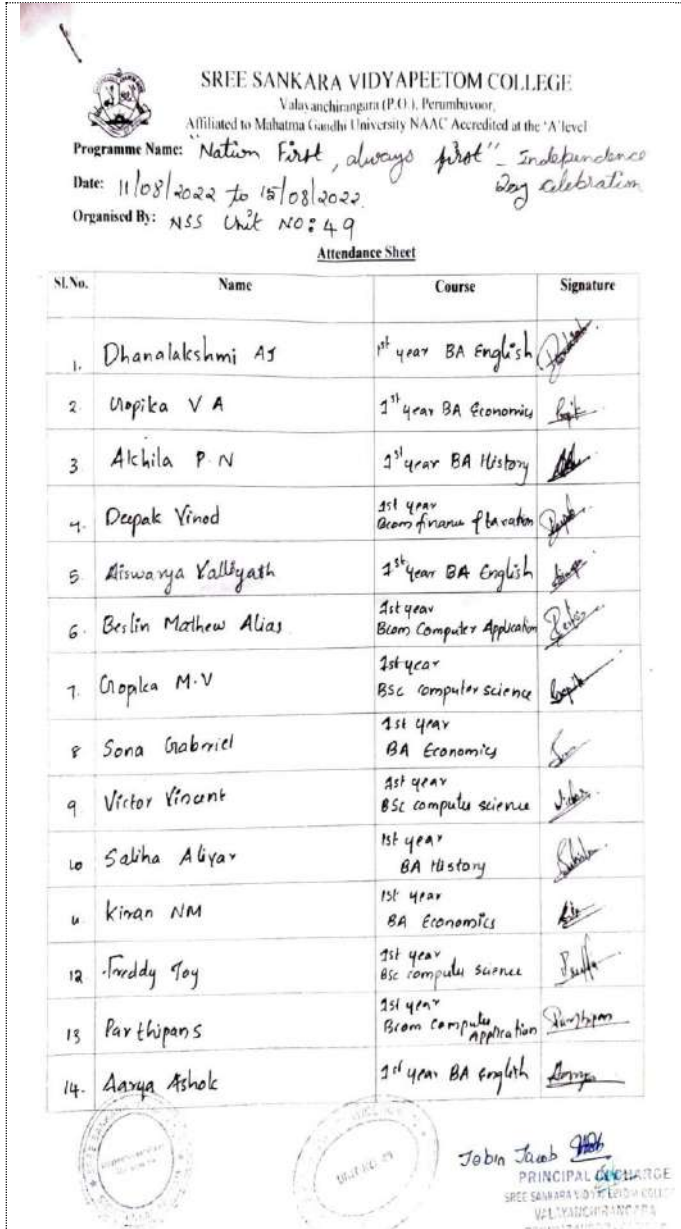 SREE SANKARA VIDYAPEETOM COLLEGE
Valayanchirangara (P.O.), Perumbavoor,
Affiliated to Mahatma Gandhi University NAAC Accredited at the 'A' level
Programme Name: "Nation First, always first" - Independence
Day celebration
Date: 11/08/2022 to 15/08/2022.
Organised By: NSS Unit NO: 49
Attendance Sheet
Sl.No. Name Course Signature
1. Dhanalakshmi AJ 1st year BA English
2. Gopika V A 1st year BA Economics
3 Akhila P.N 1st year BA History
4. Deepak Vinod 1st year
Bcom finance & taxation
5 Aiswarya Valliyath 1st year BA English
6. Beslin Mathew Alias 1st year
Bcom Computer Application
7. Gopika M.V 1st year
BSc computer science
8 Sona Gabriel 1st year
BA Economics
9 Victor Vincent 1st year
BSc computer science
10 Saliha Aliyar 1st year
BA History
11 Kiran NM 1st year
BA Economics
12 Freddy Joy 1st year
BSc computer science
13 Parthipan S 1st year
Bcom Computer
Application
14. Aarya Ashok 1st year BA English
Jobin Jacob
PRINCIPAL CHARGE
SREE SANKARA VIDYAPEETOM COLLEGE
VALAYANCHIRANGARA